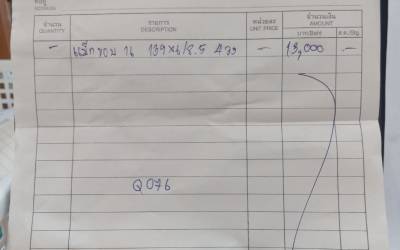 ที่อยู่
ADDRESS
จำนวน รายการ หน่วยละ จำนวนเงิน
QUANTITY DESCRIPTION UNIT PRICE AMOUNT
บาท/Baht ส.ต./Stg.
- แม็กขอบ 16 139x6/8.5 4 วง - 13,000 .-
Q076